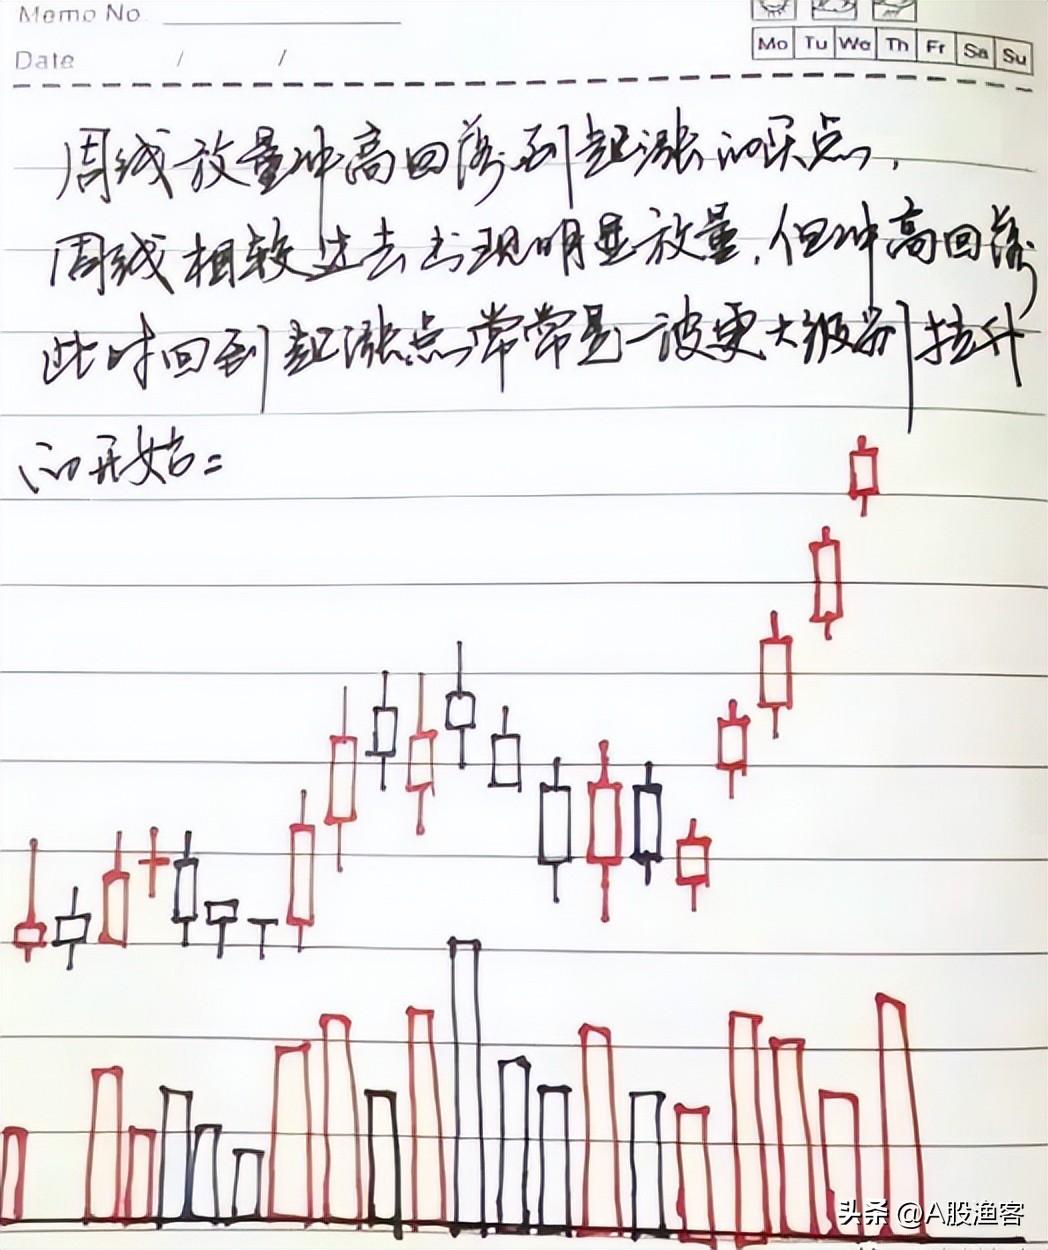 Memo No.
Date / /
Mo Tu We Th Fr Sa Su
周线放量冲高回落到起涨的买点,
周线相较过去出现明显放量,但冲高回落
此时回到起涨点常常是一波更大级别拉升
的开始=
头条 @A股渔客